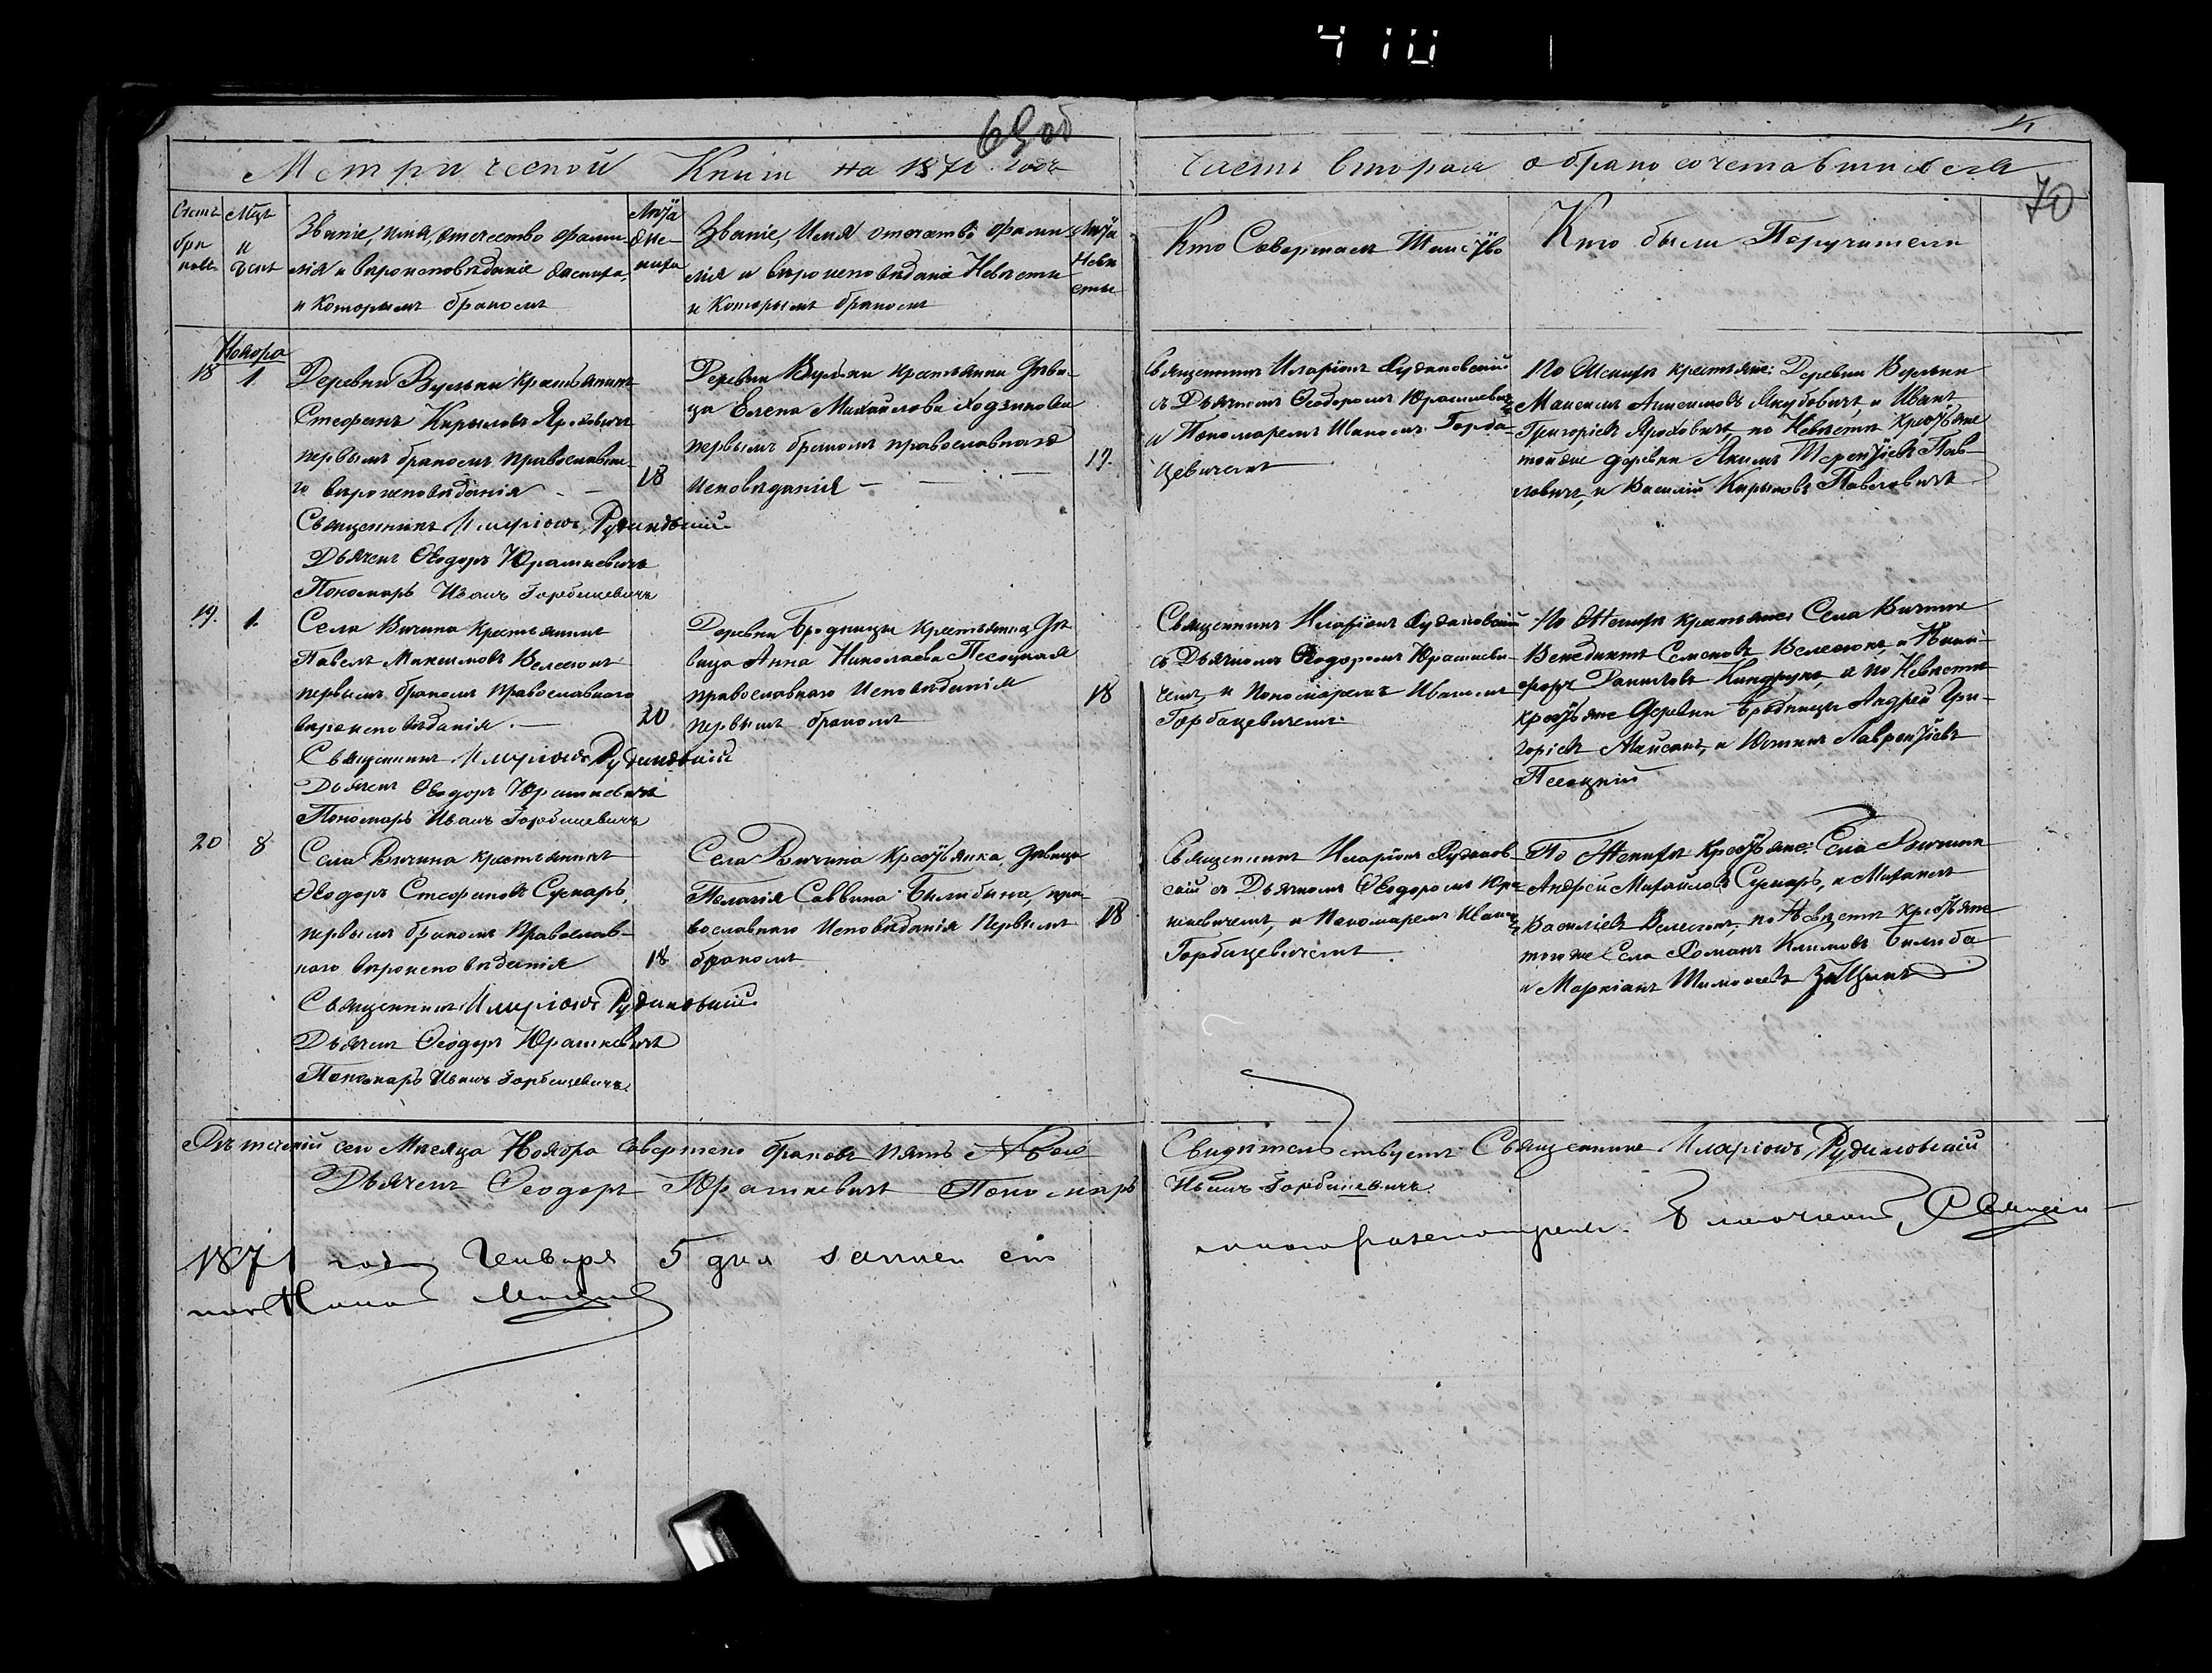 410
69 об
Метрической Книги на 1870 годъ
Часть вторая о бракосочетавшихся
70
Счетъ браковъ
Мцъ и день
Званіе, имя, отечество фами-
лія и вероисповѣданіе жениха,
и Которымъ бракомъ
Лѣта жениха
Званіе, Имя отечество, фами-
лія и вѣроисповѣданіе Невѣсты
и Которымъ бракомъ
Лѣта Невѣсты
Кто Совершалъ Таинство
Кто были Поручители
Ноября
18
1.
Деревни Вульки крестьянинъ
Стефанъ Кириловъ Яроховичъ
первымъ бракомъ православна-
го вѣроисповѣданія
18
Священникъ Иларіонъ Рудаковскій
Дьячекъ Ѳеодоръ Юрашкевичъ
Пономарь Иванъ Горбацевичъ
Деревни Вульки крестьянка Дѣви-
ца Елена Михайлова
первымъ бракомъ православнаго
Исповѣданія
19.
Священникъ Иларіонъ Рудаковскій
съ Дьячкомъ Ѳеодоромъ Юрашкевичемъ
и Пономаремъ Иваномъ Горба-
цевичемъ
По Женихѣ крестьяне: Деревни Вульки
Максимъ Якубовичъ, и Иванъ
Григоріевъ Яроховичъ, по Невѣстѣ Крестьяне
той же деревни Якимъ Терентіевъ Пав-
ловичъ, и Василій Кириловъ Павловичъ
19.
1.
Села Вичина Крестьянинъ
Павелъ Максимовъ Велесюкъ
первымъ бракомъ православнаго
вѣроисповѣданія.
20
Священникъ Иларіонъ Рудаковскій
Дьячекъ Ѳеодоръ Юрашкевичъ
Пономарь Иванъ Горбацевичъ
Деревни Бродницы крестьянка Дѣ-
вица Анна Николаева Песоцкая
православнаго Исповѣданія
первымъ бракомъ
18
Священникъ Иларіонъ Рудаковскій
съ Дьячкомъ Ѳеодоромъ Юрашкеви-
чемъ, и Пономаремъ Иваномъ
Горбацевичемъ.
По Женихѣ крестьяне: Села Вичина
Венедиктъ Семеновъ Велесюкъ, и Ники-
форъ Даниловъ, а по Невѣстѣ
крестьяне Деревни Бродницы Андрей Гри-
горіевъ, и Лаврентіевъ
Песоцкій
20
8
Села Вичина крестьянинъ
Ѳеодоръ Стефановъ Сухаръ,
первымъ бракомъ Православ-
наго вѣроисповѣданія
18
Священникъ Иларіонъ Рудаковскій
Дьячекъ Ѳеодоръ Юрашкевичъ
Пономарь Иванъ Горбацевичъ
Села Вичина Крестьянка, Дѣвица
Пелагія Саввина, пра-
вославнаго Исповѣданія Первымъ
бракомъ
18
Священникъ Иларіонъ Рудаков-
скій съ Дьячкомъ Ѳеодоромъ Юра-
шкевичемъ, и Пономаремъ Иваномъ
Горбацевичемъ
По Женихѣ Крестьяне: Села Вичина
Андрей Михайловъ Сухаръ, и Михаилъ
Василіевъ Велесюкъ, по Невѣстѣ Крестьяне
того же Села Романъ Климовъ Билиба
и Маркіанъ Тимоѳеевъ
Въ теченіи сего Мѣсяца Ноября Совершено браковъ пять
Свидѣтельствуетъ Священникъ Иларіонъ Рудаковскій
Дьячекъ Ѳеодоръ Юрашкевичъ Пономарь
Иванъ Горбацевичъ
1871 года Генваря 5 дня